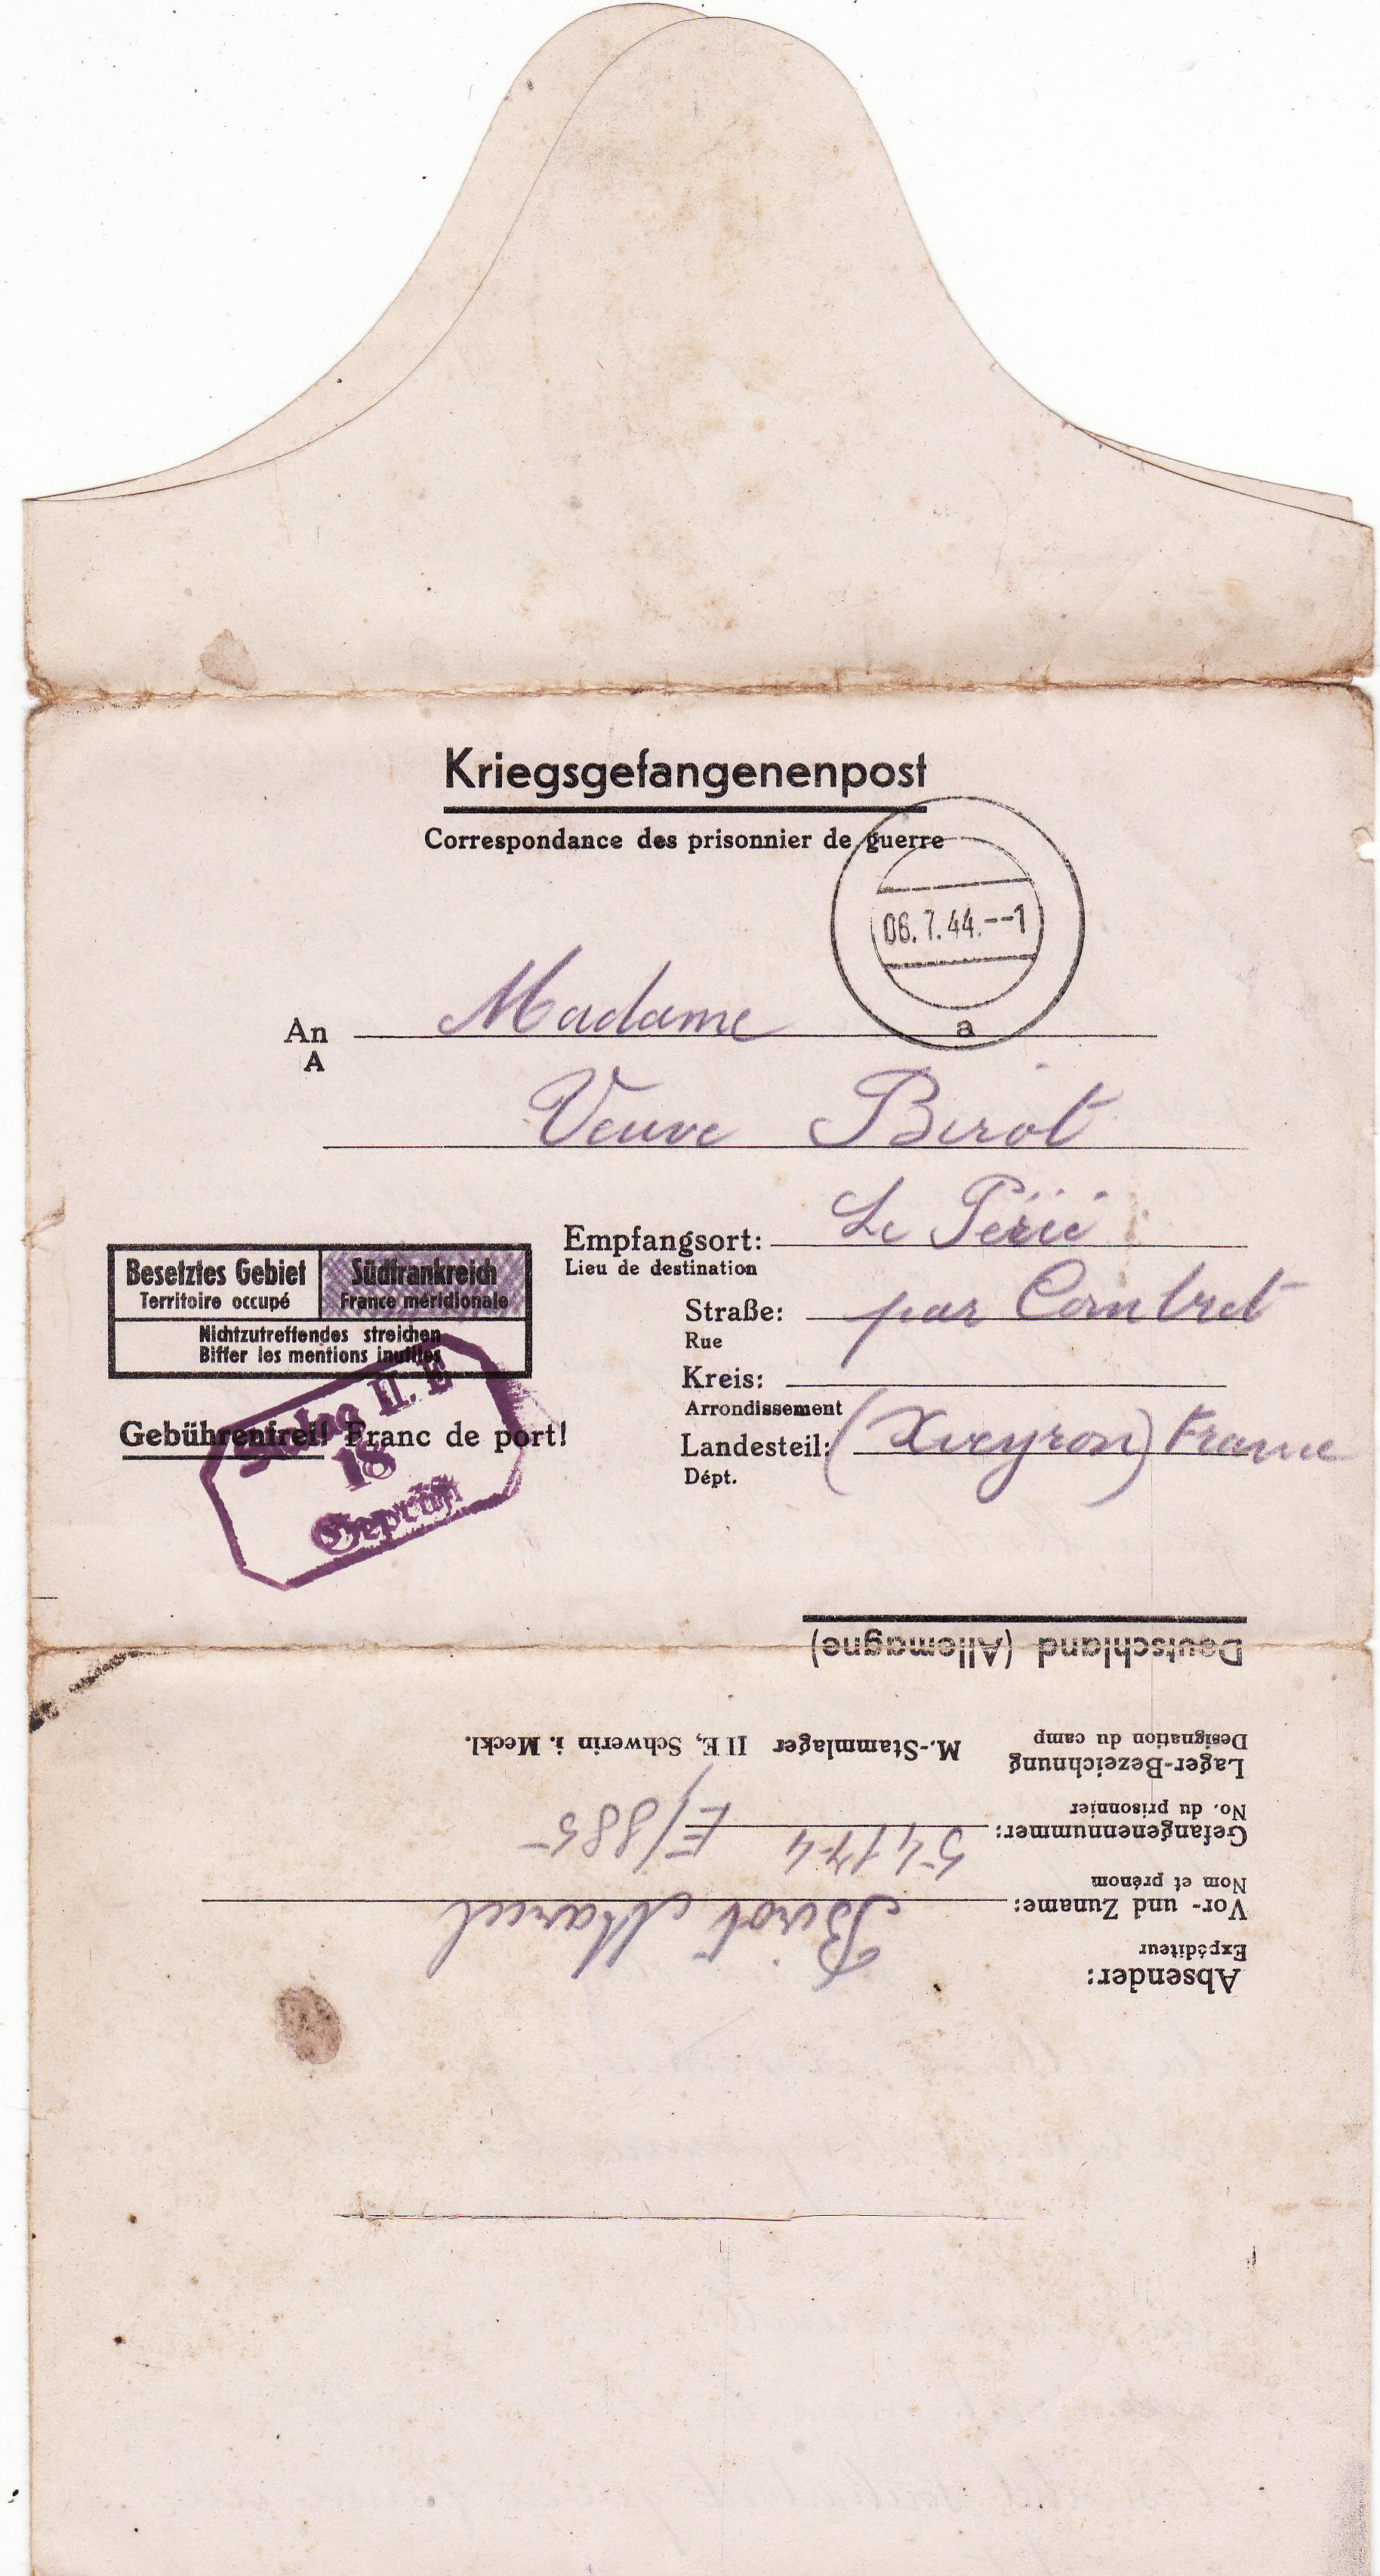 Kriegsgefangenenpost
Correspondance des prisonnier de guerre
06.7.44.--1
a
An Madame
A
Veuve Birot
Empfangsort: Le Périé
Lieu de destination
Besetztes Gebiet
Territoire occupé
Südfrankreich
France méridionale
Nichtzutreffendes streichen
Biffer les mentions inutiles
Straße: par Combret
Rue
Kreis:
Arrondissement
Gebührenfrei! Franc de port!
Landesteil: (Aveyron) France
Dépt.
Stalag II. E
18
Geprüft
Absender:
Expéditeur
Vor- und Zuname: Birot Marcel
Nom et prénom
Gefangenennummer: 54174 E/885
No. du prisonnier
Lager-Bezeichnung M.-Stammlager II E, Schwerin i. Meckl.
Designation du camp
Deutschland (Allemagne)